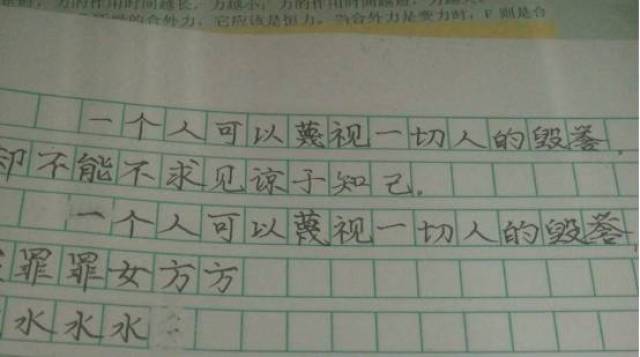 方的作用时间越长，力越小，力的作用时间越短，力越大。
的合外力，它应该是恒力。当合外力是变力时，F 则是合
一个人可以蔑视一切人的毁誉，
却不能不求见谅于知己。
一个人可以蔑视一切人的毁誉
罪罪女方方
水水水